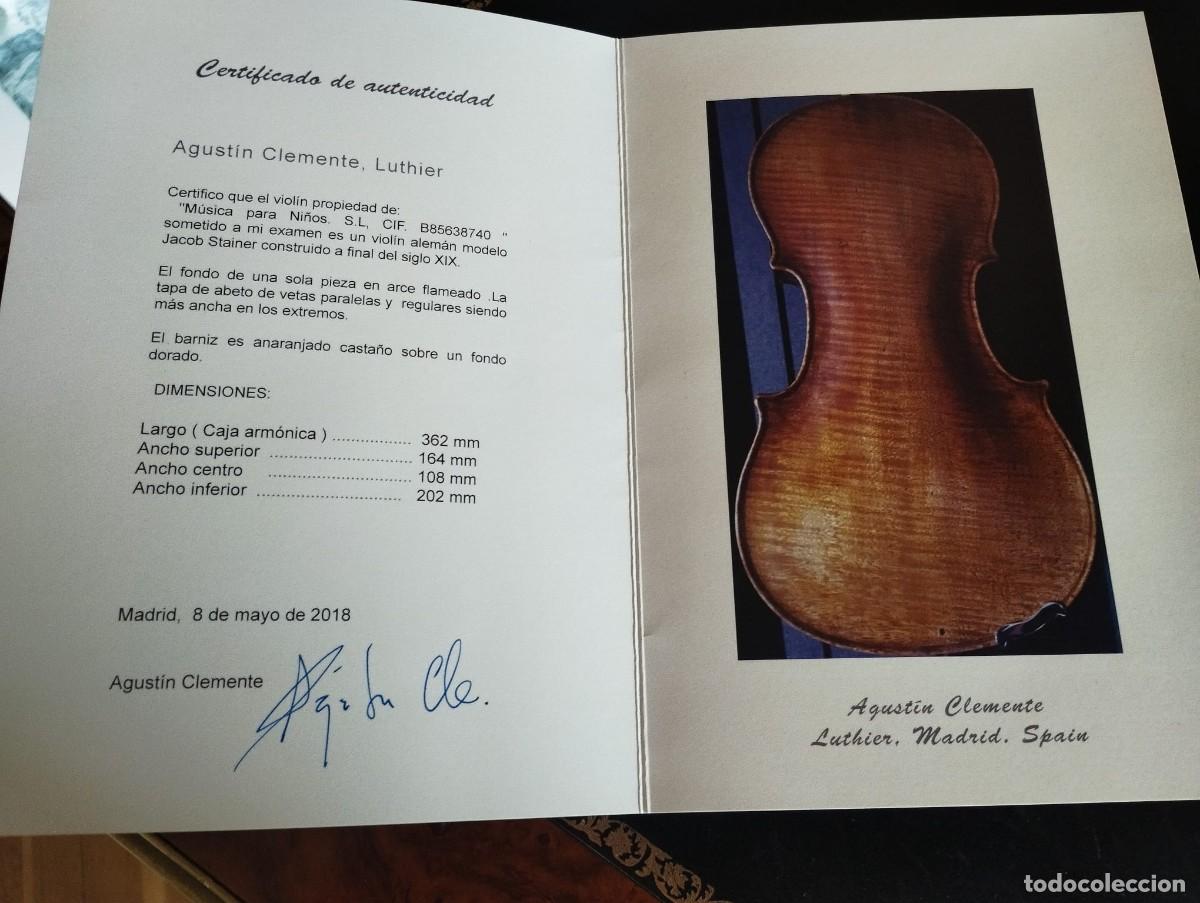 Certificado de autenticidad
Agustín Clemente, Luthier
Certifico que el violín propiedad de:
"Música para Niños. S.L, CIF. B85638740 "
sometido a mi examen es un violín alemán modelo
Jacob Stainer construido a final del siglo XIX.
El fondo de una sola pieza en arce flameado .La
tapa de abeto de vetas paralelas y regulares siendo
más ancha en los extremos.
El barniz es anaranjado castaño sobre un fondo
dorado.
DIMENSIONES:
Largo ( Caja armónica ) ................. 362 mm
Ancho superior .............................. 164 mm
Ancho centro .............................. 108 mm
Ancho inferior .............................. 202 mm
Madrid, 8 de mayo de 2018
Agustín Clemente
Agustín Cle.
Agustín Clemente
Luthier. Madrid. Spain
todocoleccion